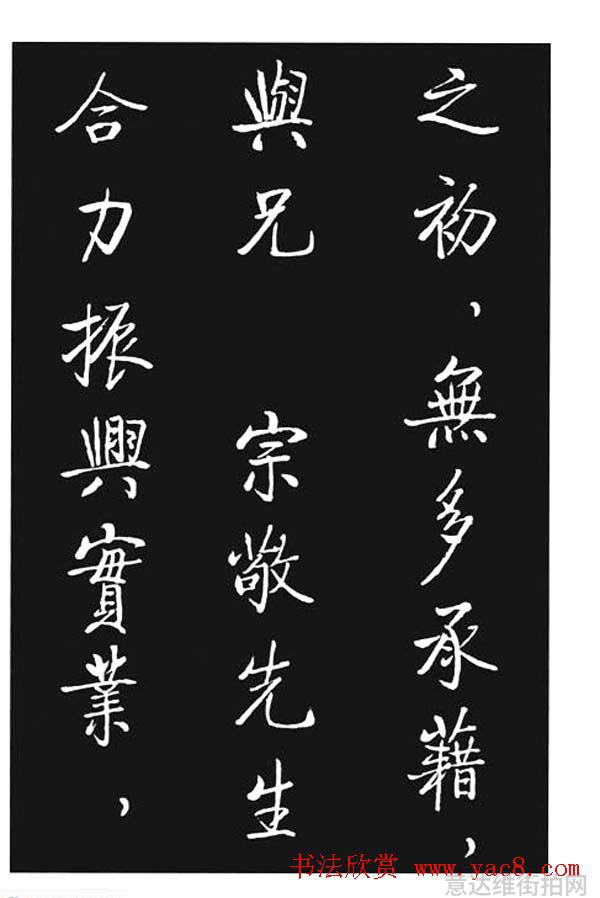 之初，無多承藉，
與兄　宗敬先生
合力振興實業，
书法欣赏 www.yac8.com
意达维街拍网